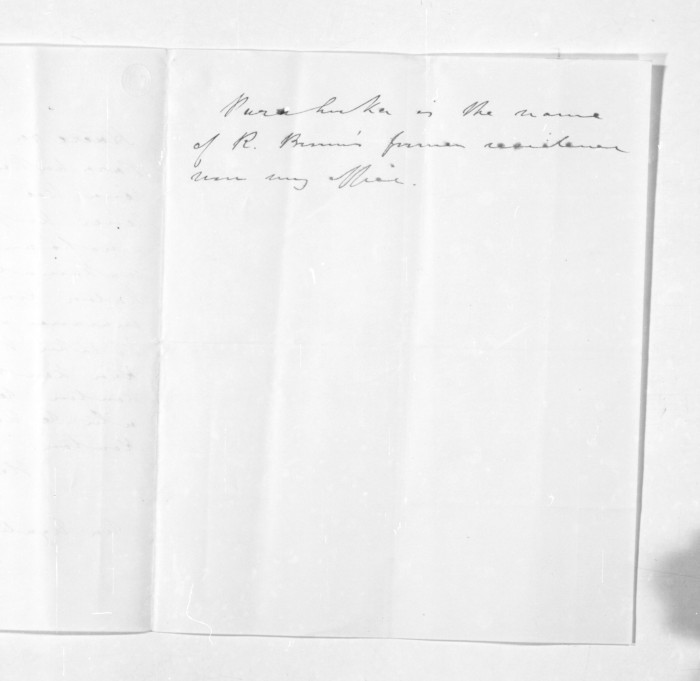 Purahuka is the name
of R. Brown's former residence
now my office.